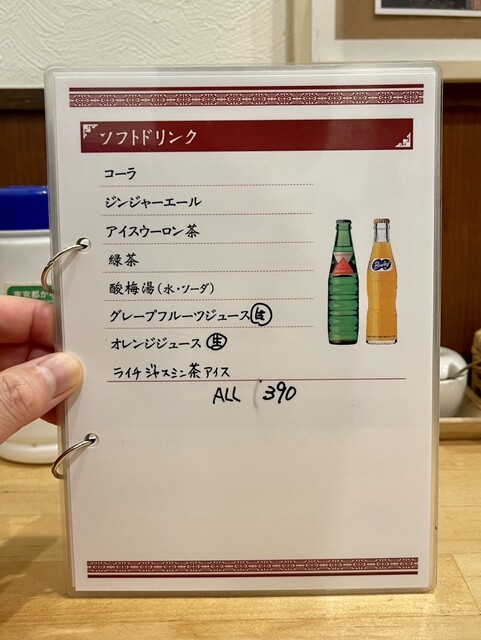 ソフトドリンク
コーラ
ジンジャーエール
アイスウーロン茶
緑茶
酸梅湯(水・ソーダ)
グレープフルーツジュース 生
オレンジジュース 生
ライチジャスミン茶アイス
ALL 390